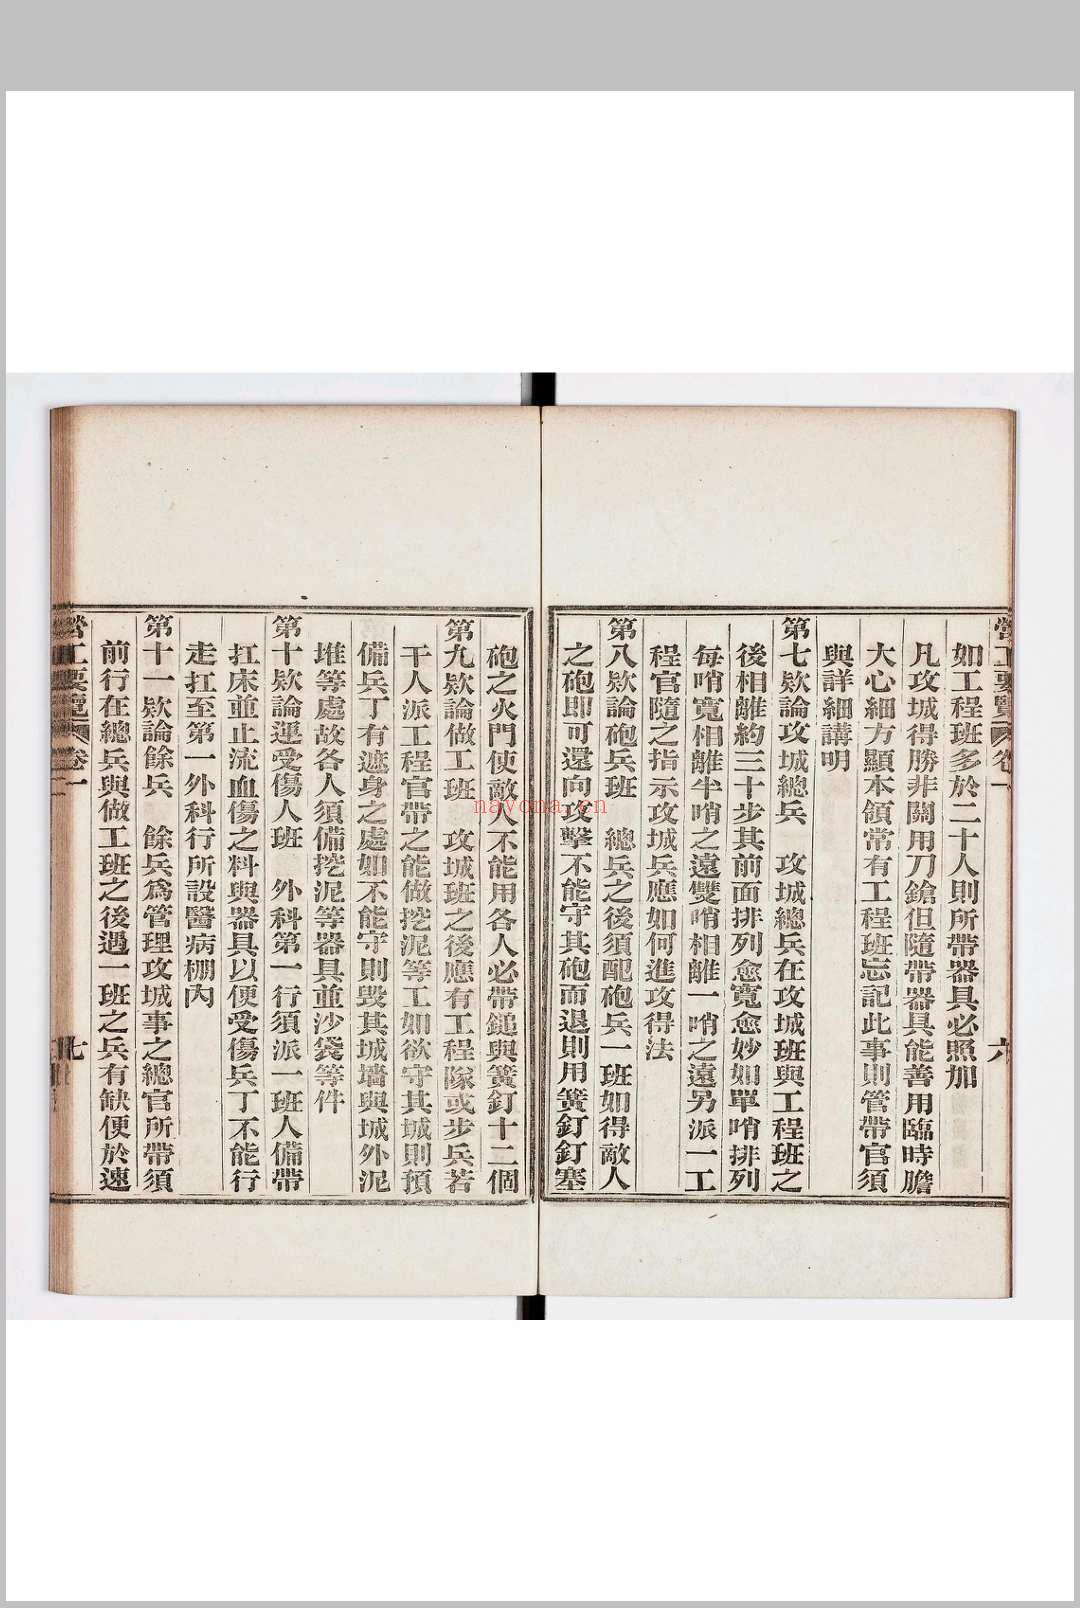 營工要覽 卷一 六
如工程班多於二十人則所帶器具必照加
凡攻城得勝非關用刀鎗但隨帶器具能善用臨時膽
大心細方顯本領常有工程班忘記此事則管帶官須
與詳細講明
第七欵論攻城總兵 攻城總兵在攻城班與工程班之
後相離約三十步其前面排列愈寬愈妙如單哨排列
每哨寬相離半哨之遠雙哨相離一哨之遠另派一工
程官隨之指示攻城兵應如何進攻得法
第八欵論砲兵班 總兵之後須配砲兵一班如得敵人
之砲即可還向攻擊不能守其砲而退則用簧釘釘塞
砲之火門使敵人不能用各人必帶鎚與簧釘十二個
第九欵論做工班 攻城班之後應有工程隊或步兵若
干人派工程官帶之能做挖泥等工如欲守其城則預
備兵丁有遮身之處如不能守則毀其城墻與城外泥
堆等處故各人須備挖泥等器具並沙袋等件
第十欵論運受傷人班 外科第一行須派一班人備帶
扛床並止流血傷之料與器具以便受傷兵丁不能行
走扛至第一外科行所設醫病棚內
第十一欵論餘兵 餘兵爲管理攻城事之總官所帶須
前行在總兵與做工班之後遇一班之兵有缺便於速
營工要覽 卷一 七
navona.cn